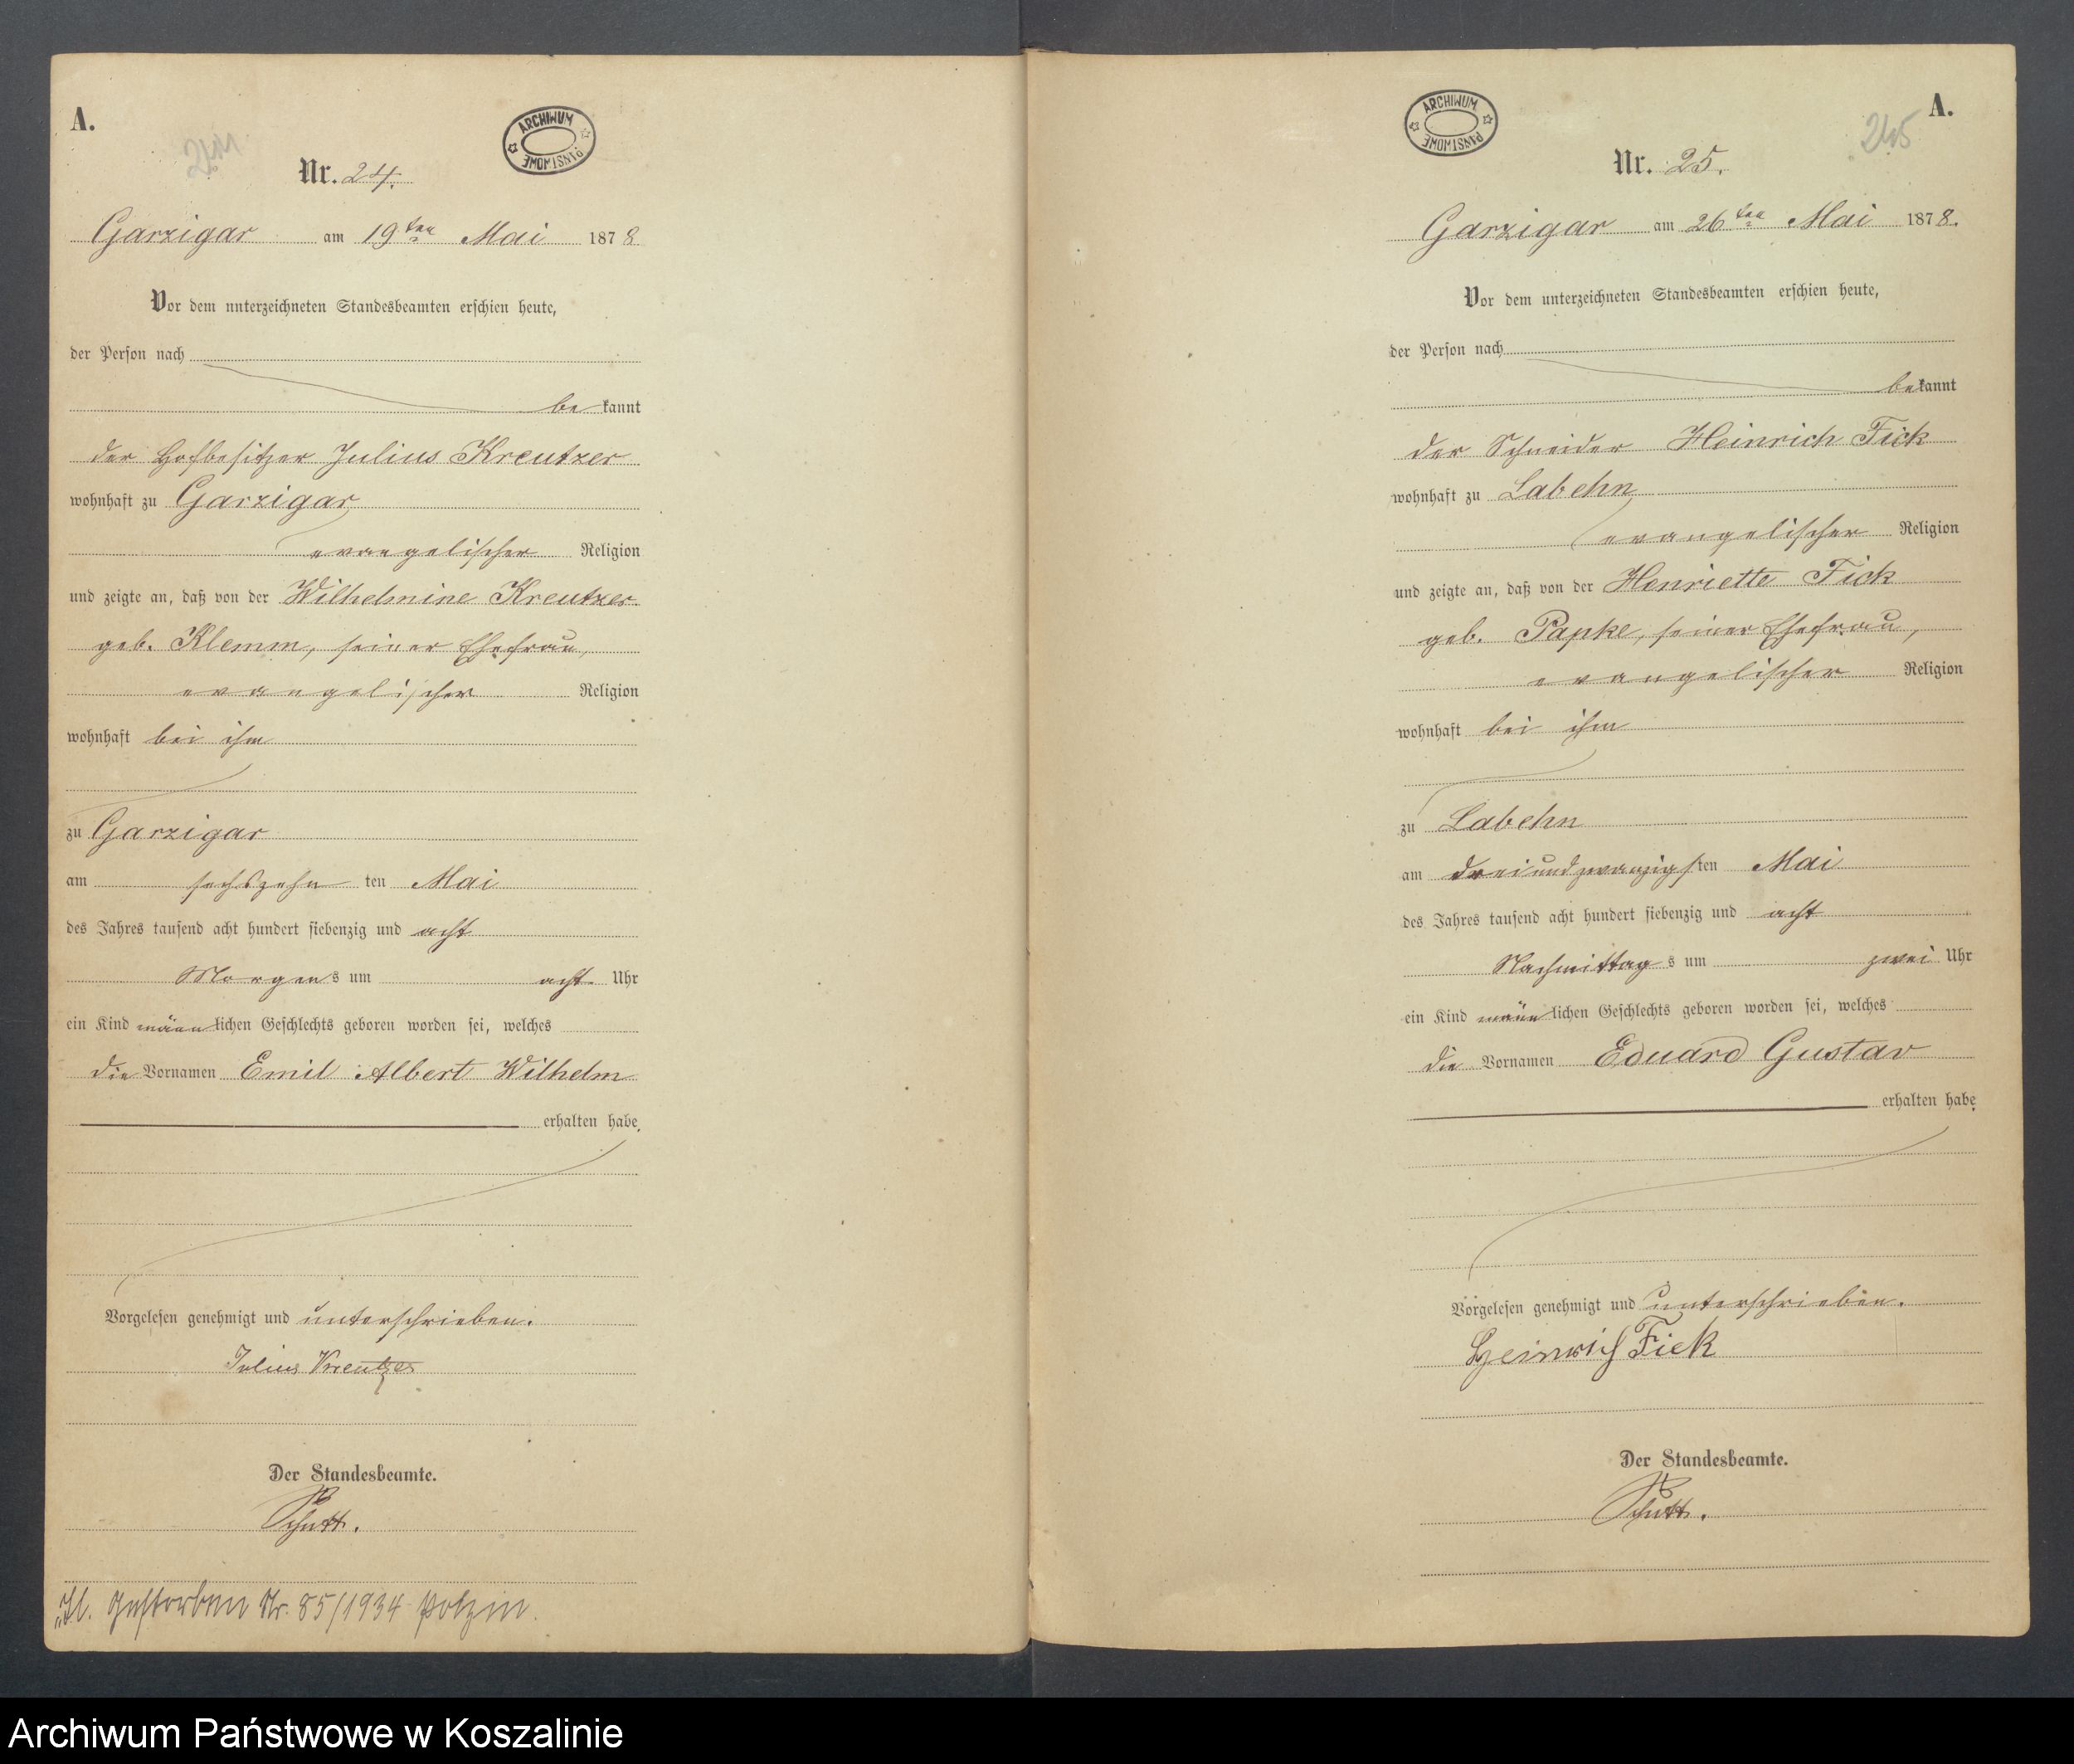 A.
ARCHIWUM PAŃSTWOWE
Nr. 24.
Garzigar am 19ten Mai 1878
Vor dem unterzeichneten Standesbeamten erschien heute,
der Person nach
be kannt
der Hofbesitzer Julius Kreutzer
wohnhaft zu Garzigar
evangelischer Religion
und zeigte an, daß von der Wilhelmine Kreutzer
geb. Klemm, seiner Ehefrau,
evangelischer Religion
wohnhaft bei ihm
zu Garzigar
am sechszehn ten Mai
des Jahres tausend acht hundert siebenzig und acht
Morgens um acht Uhr
ein Kind männlichen Geschlechts geboren worden sei, welches
die Vornamen Emil Albert Wilhelm
erhalten habe.
Vorgelesen genehmigt und unterschrieben.
Julius Kreutzer
Der Standesbeamte.
Schutt.
gestorben Nr. 85/1934 Polzin.
ARCHIWUM PAŃSTWOWE
A.
245
Nr. 25.
Garzigar am 26ten Mai 1878.
Vor dem unterzeichneten Standesbeamten erschien heute,
der Person nach
bekannt
der Schneider Heinrich Fick
wohnhaft zu Labehn
evangelischer Religion
und zeigte an, daß von der Henriette Fick
geb. Papke, seiner Ehefrau,
evangelischer Religion
wohnhaft bei ihm
zu Labehn
am dreiundzwanzigsten Mai
des Jahres tausend acht hundert siebenzig und acht
Nachmittags um zwei Uhr
ein Kind männlichen Geschlechts geboren worden sei, welches
die Vornamen Eduard Gustav
erhalten habe.
Vorgelesen genehmigt und unterschrieben.
Heinrich Fick
Der Standesbeamte.
Schutt.
Archiwum Państwowe w Koszalinie